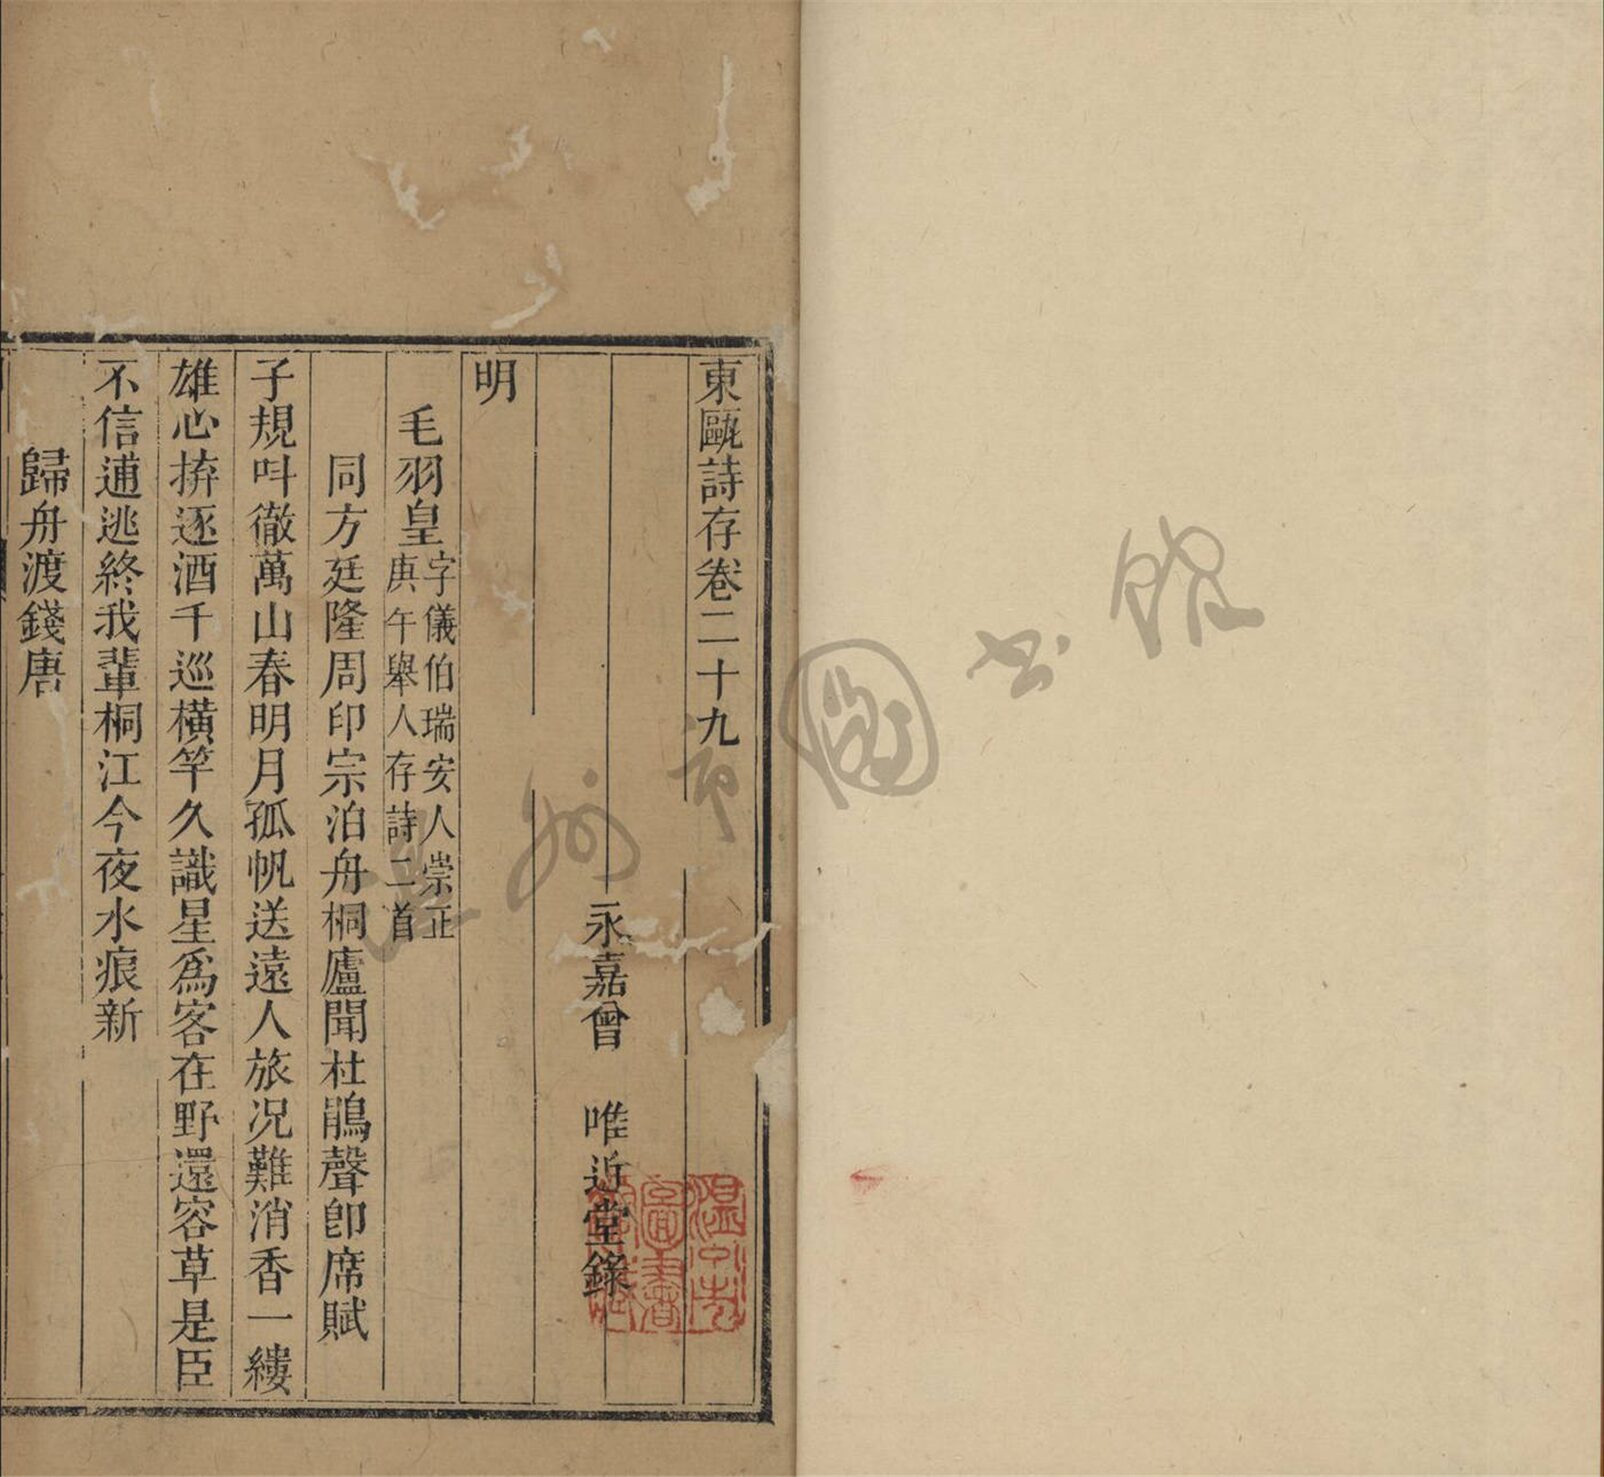 東甌詩存卷二十九
永嘉曾　唯近堂錄
明
毛羽皇字儀伯瑞安人崇正
庚午舉人存詩二首
同方廷隆周印宗泊舟桐廬聞杜鵑聲卽席賦
子規呌徹萬山春明月孤帆送遠人旅况難消香一縷
雄心拚逐酒千巡橫竿久識星爲客在野還容草是臣
不信逋逃終我輩桐江今夜水痕新
歸舟渡錢唐
溫州市圖書館
溫州市
圖書